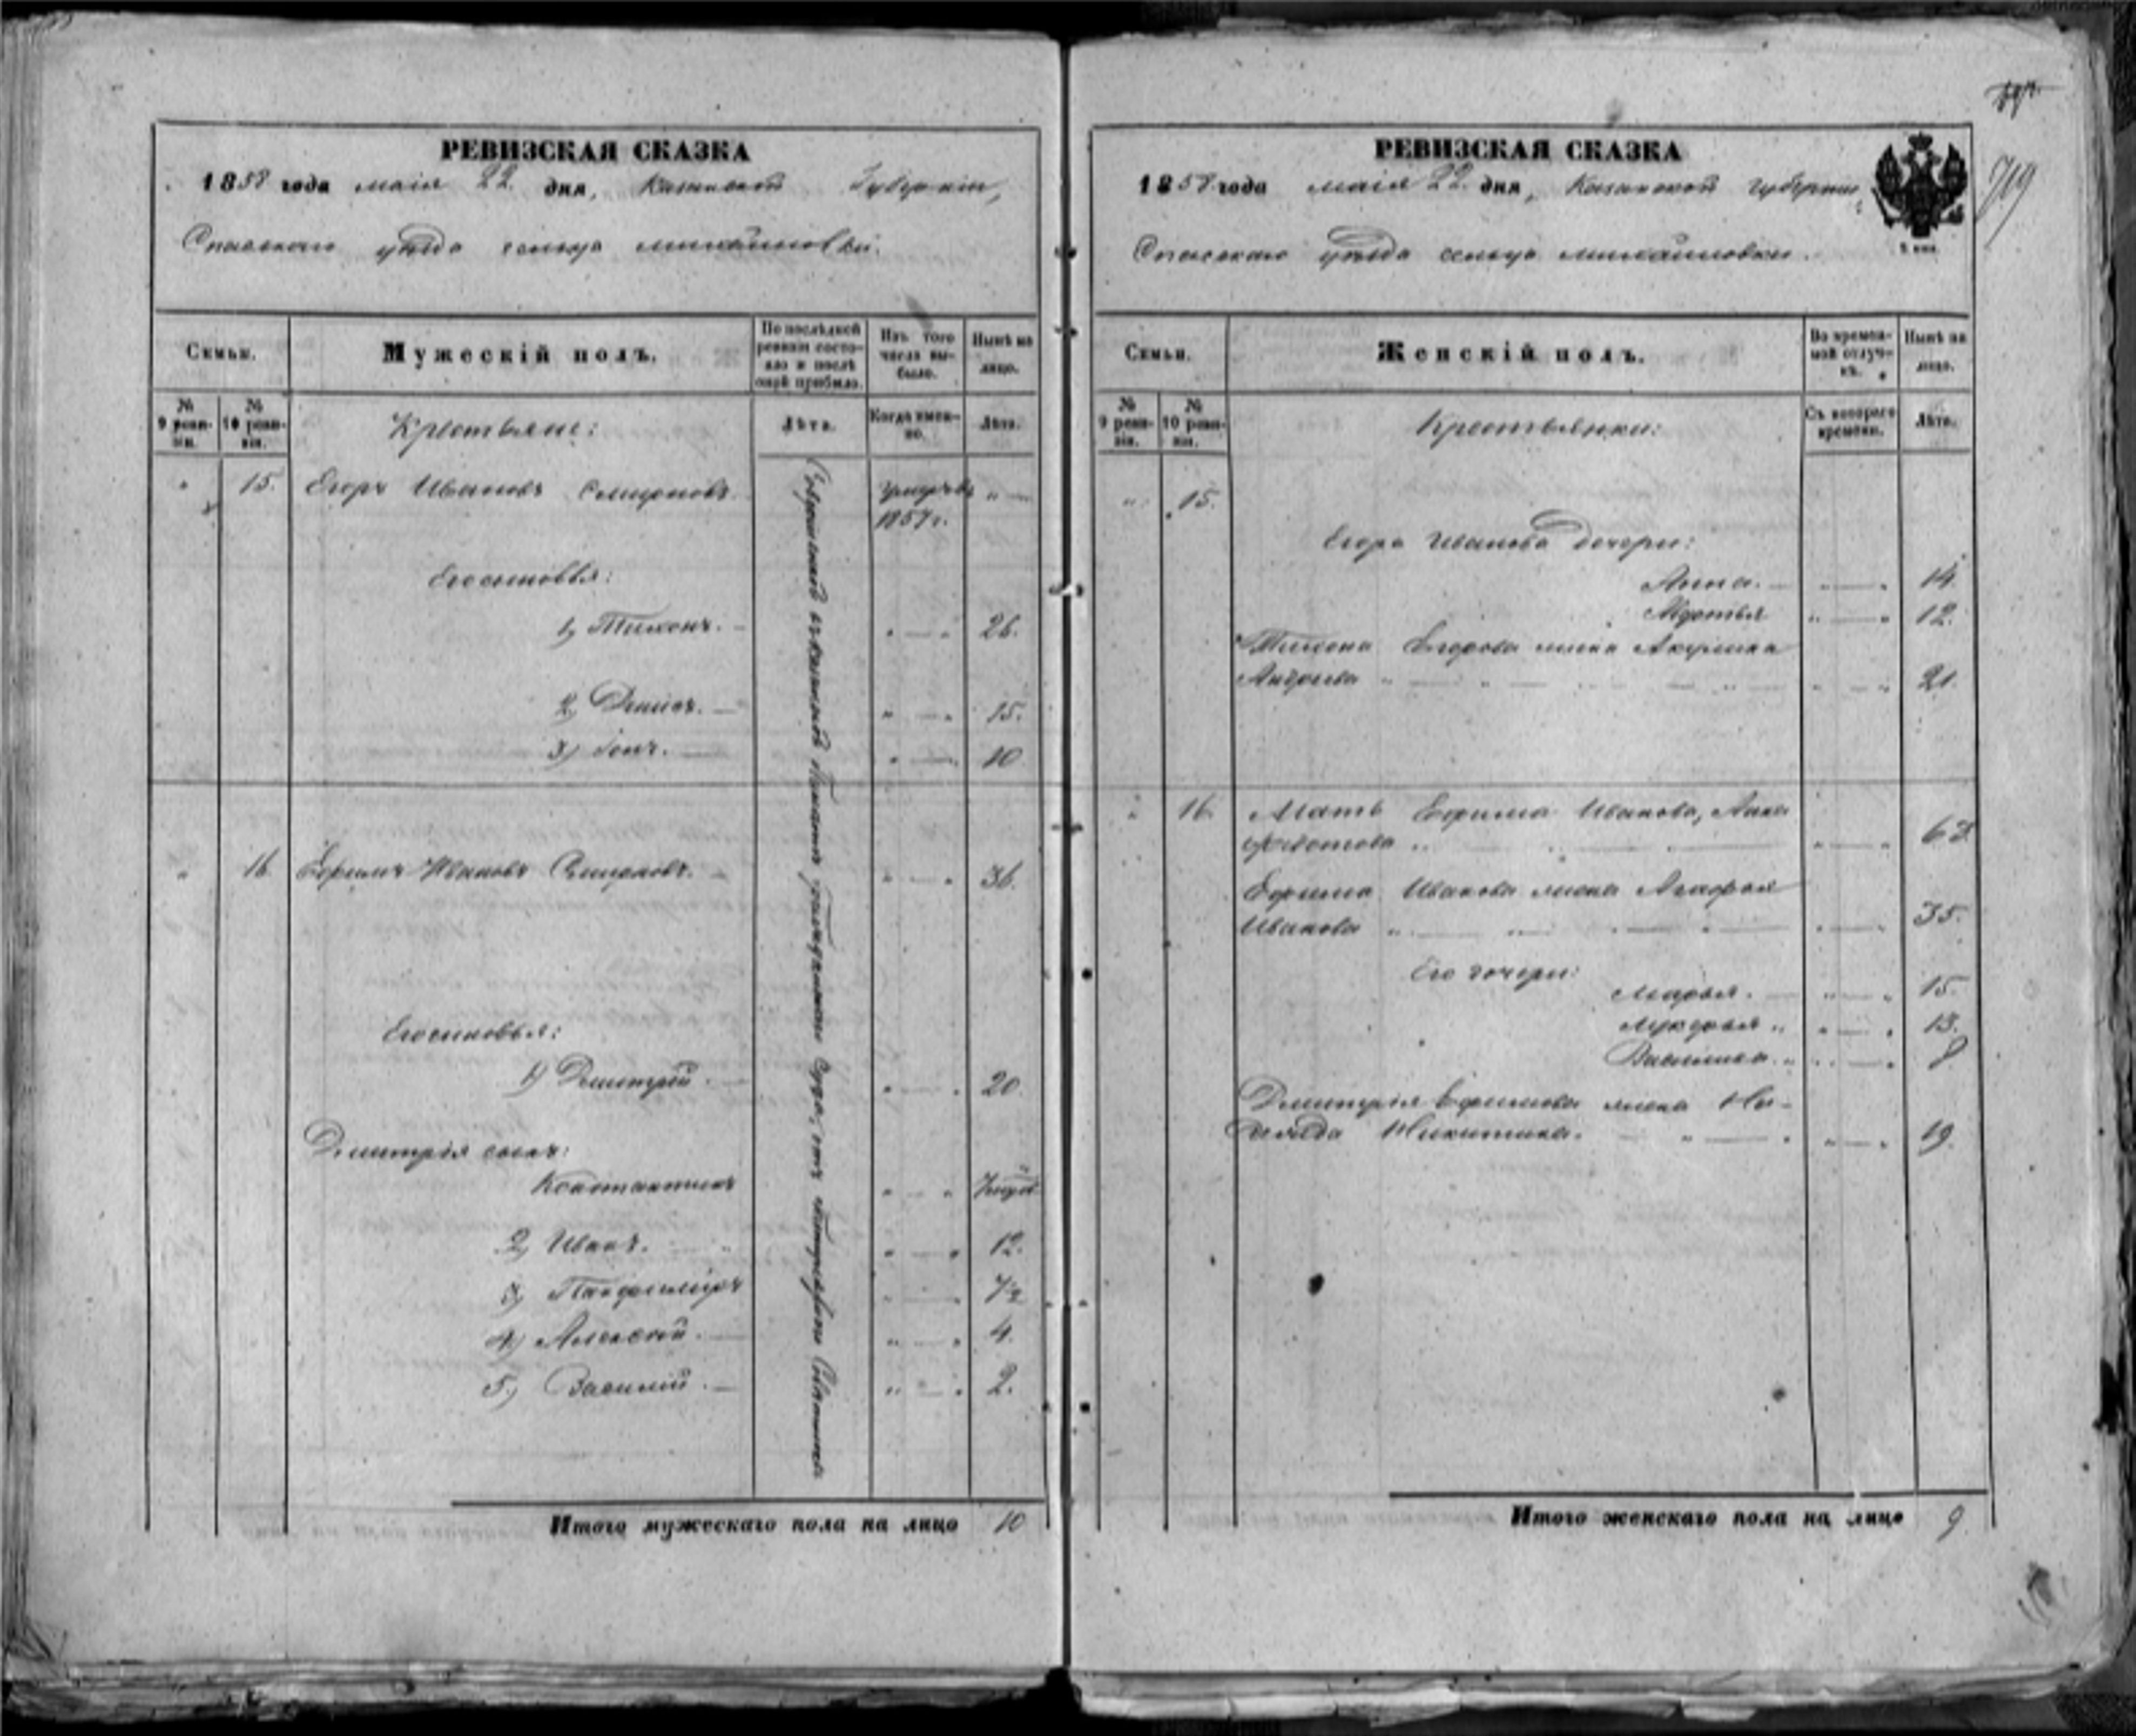 РЕВИЗСКАЯ СКАЗКА
1858 года маія 22 дня, Казанской Губерніи,
Спасскаго уѣзда сельца Михайловки.
Семьи.
Мужескій полъ.
По послѣдней ревизіи состояло и послѣ оной прибыло.
Изъ того числа выбыло.
Нынѣ на лицо.
№ 9 ревизіи.
№ 10 ревизіи.
Крестьяне:
Лѣта.
Когда именно.
Лѣта.
15. Егоръ Ивановъ Смирновъ. умеръ въ
1857 г.
Его сыновья:
1, Тихонъ. 26.
2, Денисъ. 15.
3, 10
16 Ефимъ Ивановъ Смирновъ. 36.
Его сыновья:
1) Дмитрій. 20.
Дмитрія сынъ:
Константинъ
2, Иванъ. 12.
3, 7½
4, Алексѣй. 4.
5, Василій. 2.
Итого мужескаго пола на лицо 10
719
РЕВИЗСКАЯ СКАЗКА
1858 года маія 22 дня, Казанской губерніи,
Спасскаго уѣзда сельца Михайловки.
Семьи.
Женскій полъ.
Во временной отлучкѣ.
Нынѣ на лицо.
№ 9 ревизіи.
№ 10 ревизіи.
Крестьянки:
Съ котораго времени.
Лѣта.
15.
Егора Иванова дочери:
Анна. 14
12.
Тихона Егорова жена Акулина
Андреева 21.
16. Мать Ефима Иванова, Анна
Федотова 63
Ефима Иванова жена Агафья
Иванова 35.
Его дочери:
Марья. 15.
Лукерья 13.
Василиса. 8
Дмитрія Ефимова жена На-
дежда Никитина. 19.
Итого женскаго пола на лицо 9